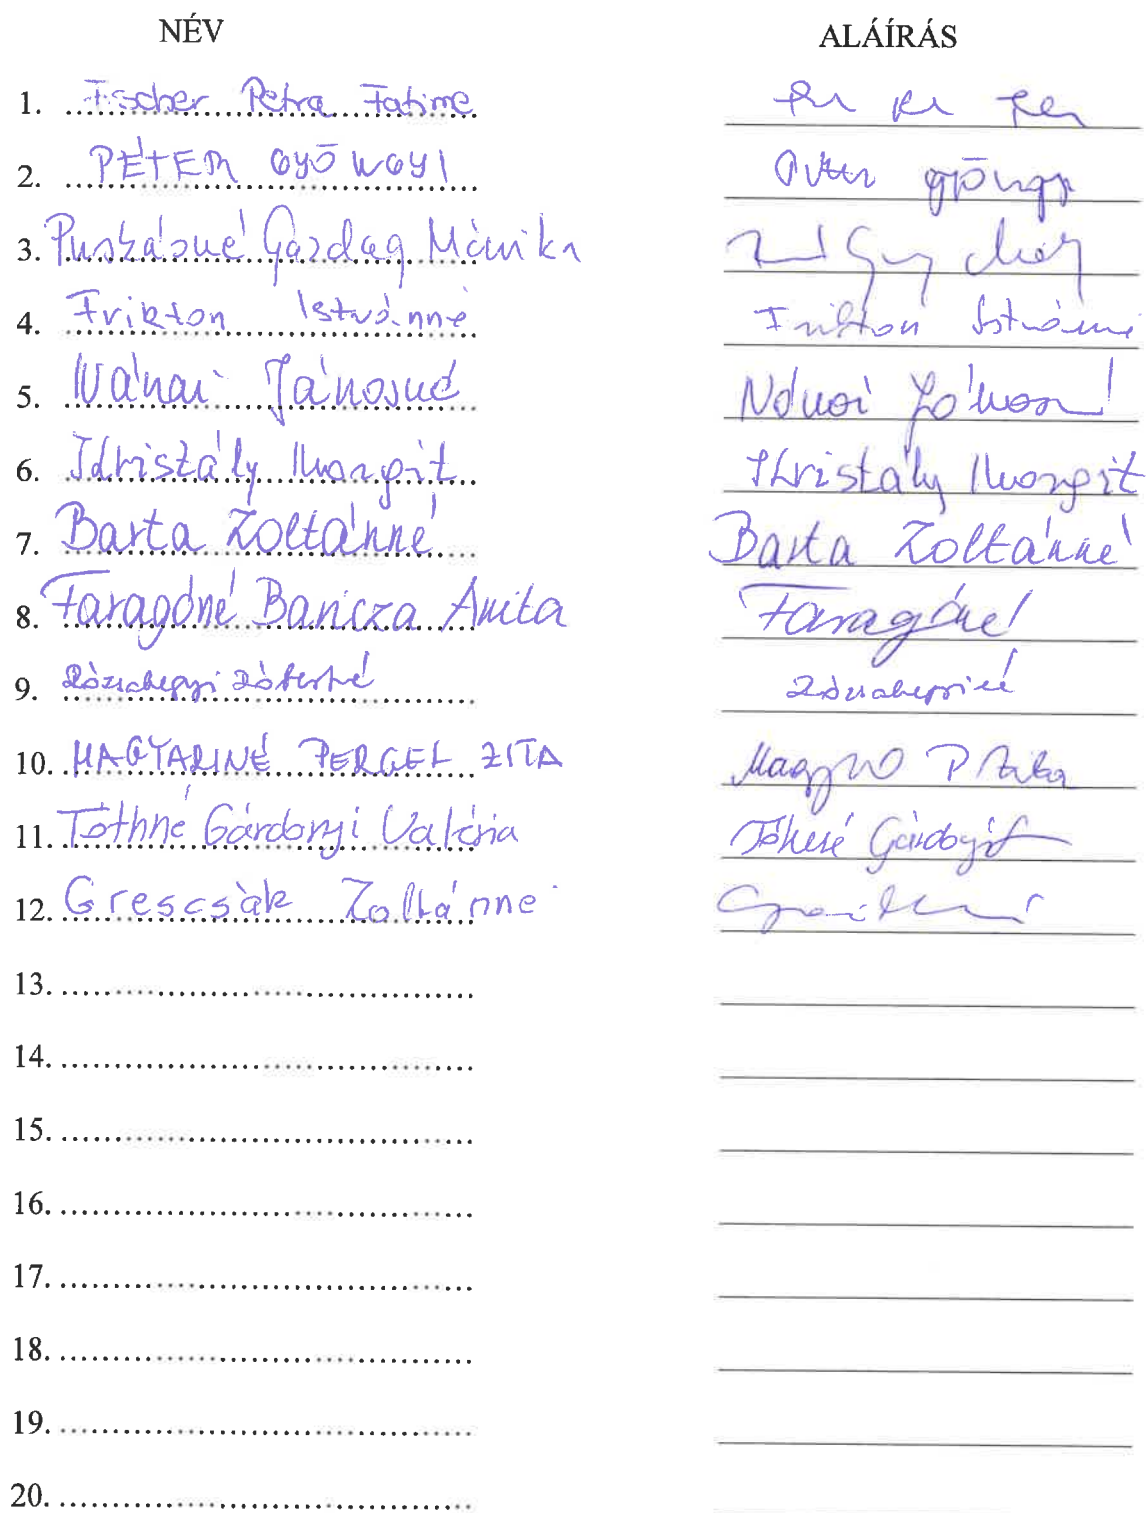 NÉV ALÁÍRÁS
1. Fischer Petra Fatime
2. PÉTER GYÖNGYI Péter Gyöngyi
3. Puskásné Gazdag Mónika
4. Frikton Istvánné Frikton Istvánné
5. Ványai Jánosné
6. Kristály Margit Kristály Margit
7. Barta Zoltánné Barta Zoltánné
8. Faragóné Baricza Anita Faragóné
9. Rózsahegyi Róbertné Rózsahegyiné
10. MAGYARINÉ PERGEL ZITA
11. Tóthné Gárdonyi Valéria Tóthné Gárdonyi
12. Grescsák Zoltánné
13.
14.
15.
16.
17.
18.
19.
20.